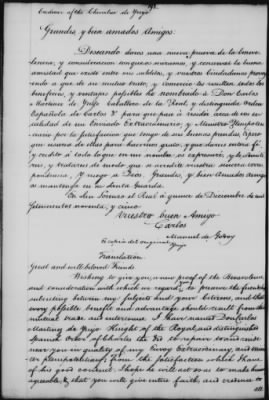 Grandes y bien amados Amigos.
Deseando daros una nueva prueva de la benevo-
lencia, y consideracion con que os miramos, y conservar la buena
amistad que existe entre mis subditos, y vuestros Ciudadanos
y que de su mutuo trato, y comercio les resulten todos los
beneficios, y ventajas posibles he nombrado a Don Carlos
Martinez de Yrujo Caballero de la Real, y distinguida orden
Española de Carlos 3º para que pase a residir cerca de vos en
calidad de mi Enviado Extraordinario, y Ministro Plenipoten-
ciario por la satisfaccion que tengo de sus buenas prendas. Espero
que usará de ellas para haceros grato, y que dareis entera fé,
y credito á todo lo que en mi nombre os
y trataros de modo que se acredite nuestra sincera corres-
pondencia. Y ruego a Dios, Grandes, y bien Amados Amigos
os mantenga en su Santa Guarda.
En San Lorenzo el Real á quince de Diciembre de mil
setecientos noventa, y cinco
Vuestro buen Amigo
Carlos
Manuel de Godoy
Es copia del original
Yrujo
Translation
Great and well beloved Friends
Wishing to give you a new proof of the Benevolence
and consideration with which we regard you, to preserve the friendship
subsisting between my subjects and your Citizens, and that
every possible benefit and advantage should result from their
mutual trade and intercourse. I have named Don Carlos
Martinez de Yrujo Knight of the Royal and distinguished
Spanish Order of Charles the 3d to repair to and reside
near you in quality of my Envoy Extraordinary, and minis-
ter plenipotentiary, from the satisfaction which I have
of his good conduct. I hope he will act so as to make himself
agreeable, & that you will give entire faith, and credence to
all